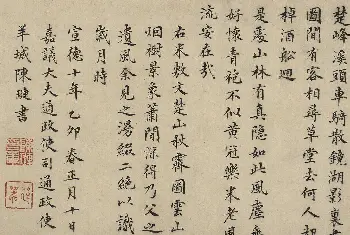 楚峰溪頭車騎散鏡湖影裏
圖間有客相尋草堂去何人
棹酒船廻
是處山林有真隱如此風塵
好懷青袍不似黃冠樂米老
流安在哉
右米敷文楚山秋霽圖雲山
烟樹景象蕭閒深得乃父之
遺風余見之漫綴二絕以識
歲月時
宣德十年乙卯春正月十日
嘉議大夫通政使司通政使
羊城陳璉書